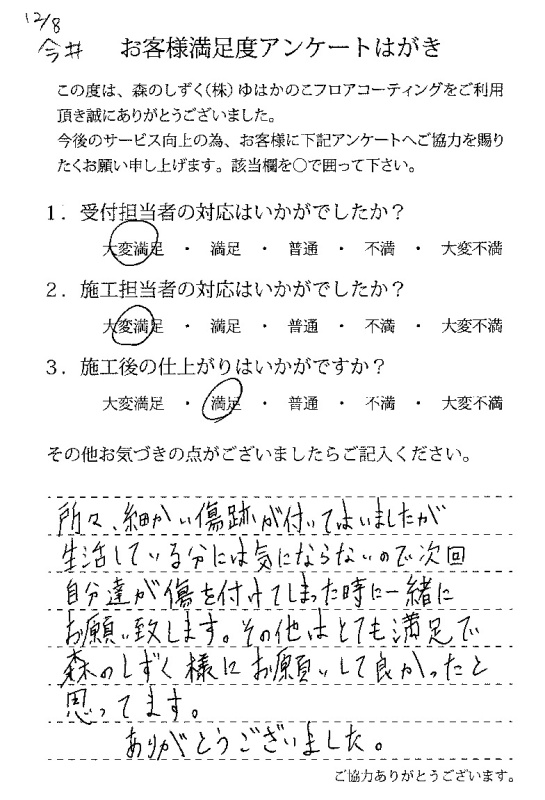 12/8
今井
お客様満足度アンケートはがき
この度は、森のしずく(株)ゆはかのこフロアコーティングをご利用
頂き誠にありがとうございました。
今後のサービス向上の為、お客様に下記アンケートへご協力を賜り
たくお願い申し上げます。該当欄を○で囲って下さい。
1．受付担当者の対応はいかがでしたか？
大変満足 ・ 満足 ・ 普通 ・ 不満 ・ 大変不満
2．施工担当者の対応はいかがでしたか？
大変満足 ・ 満足 ・ 普通 ・ 不満 ・ 大変不満
3．施工後の仕上がりはいかがですか？
大変満足 ・ 満足 ・ 普通 ・ 不満 ・ 大変不満
その他お気づきの点がございましたらご記入ください。
所々、細かい傷跡が付いてはいましたが
生活している分には気にならないので次回
自分達が傷を付けてしまった時に一緒に
お願い致します。その他はとても満足で
森のしずく様にお願いして良かったと
思ってます。
ありがとうございました。
ご協力ありがとうございます。